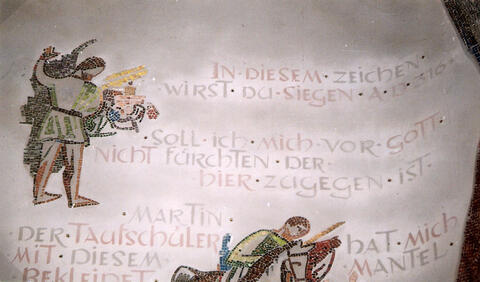 IN · DIESEM · ZEICHEN ·
WIRST · DU · SIEGEN · A · D · 310 ·
· SOLL · ICH · MICH · VOR · GOTT ·
NICHT · FÜRCHTEN · DER ·
HIER · ZUGEGEN · IST ·
· MARTIN
DER · TAUFSCHÜLER HAT · MICH
MIT · DIESEM · MANTEL ·
BEKLEIDET